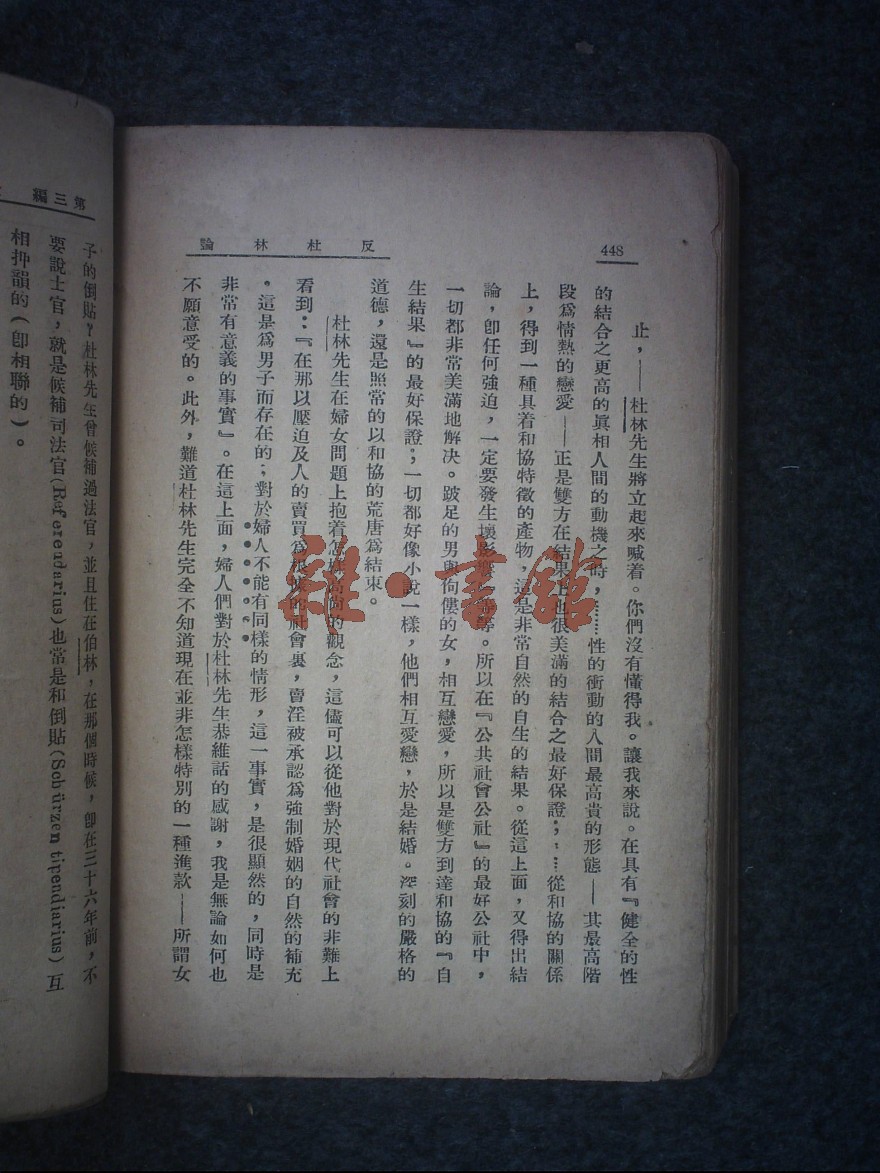 448
反杜林論
止，——杜林先生將立起來喊着。你們沒有懂得我。讓我來說。在具有『健全的性
的結合之更高的眞相人間的動機之時，………性的衝動的人間最高貴的形態——其最高階
段爲情熱的戀愛——正是雙方在結果上也很美滿的結合之最好保證；……從和協的關係
上，得到一種具着和協特徵的產物，這是非常自然的自生的結果。從這上面，又得出結
論，卽任何強迫，一定要發生壞影響——等等。所以在『公共社會公社』的最好公社中，
一切都非常美滿地解决。跛足的男與佝僂的女，相互戀愛，所以是雙方到達和協的『自
生結果』的最好保證；一切都好像小說一樣，他們相互愛戀，於是結婚。深刻的嚴格的
道德，還是照常的以和協的荒唐爲結束。
杜林先生在婦女問題上抱着怎樣高尚的觀念，這儘可以從他對於現代社會的非難上
看到：『在那以壓迫及人的賣買爲根據的社會裏，賣淫被承認爲強制婚姻的自然的補充
。這是爲男子而存在的；對於婦人不能有同樣的情形，這一事實，是很顯然的，同時是
非常有意義的事實』。在這上面，婦人們對於杜林先生恭維話的感謝，我是無論如何也
不願意受的。此外，難道杜林先生完全不知道現在並非怎樣特別的一種進款——所謂女
第三編
子的倒貼？杜林先生曾候補過法官，並且住在伯林，在那個時候，卽在三十六年前，不
要說士官，就是候補司法官(Referendarius)也常是和倒貼(Schürzen tipendiarius)互
相押韻的(卽相聯的)。
雜·書館